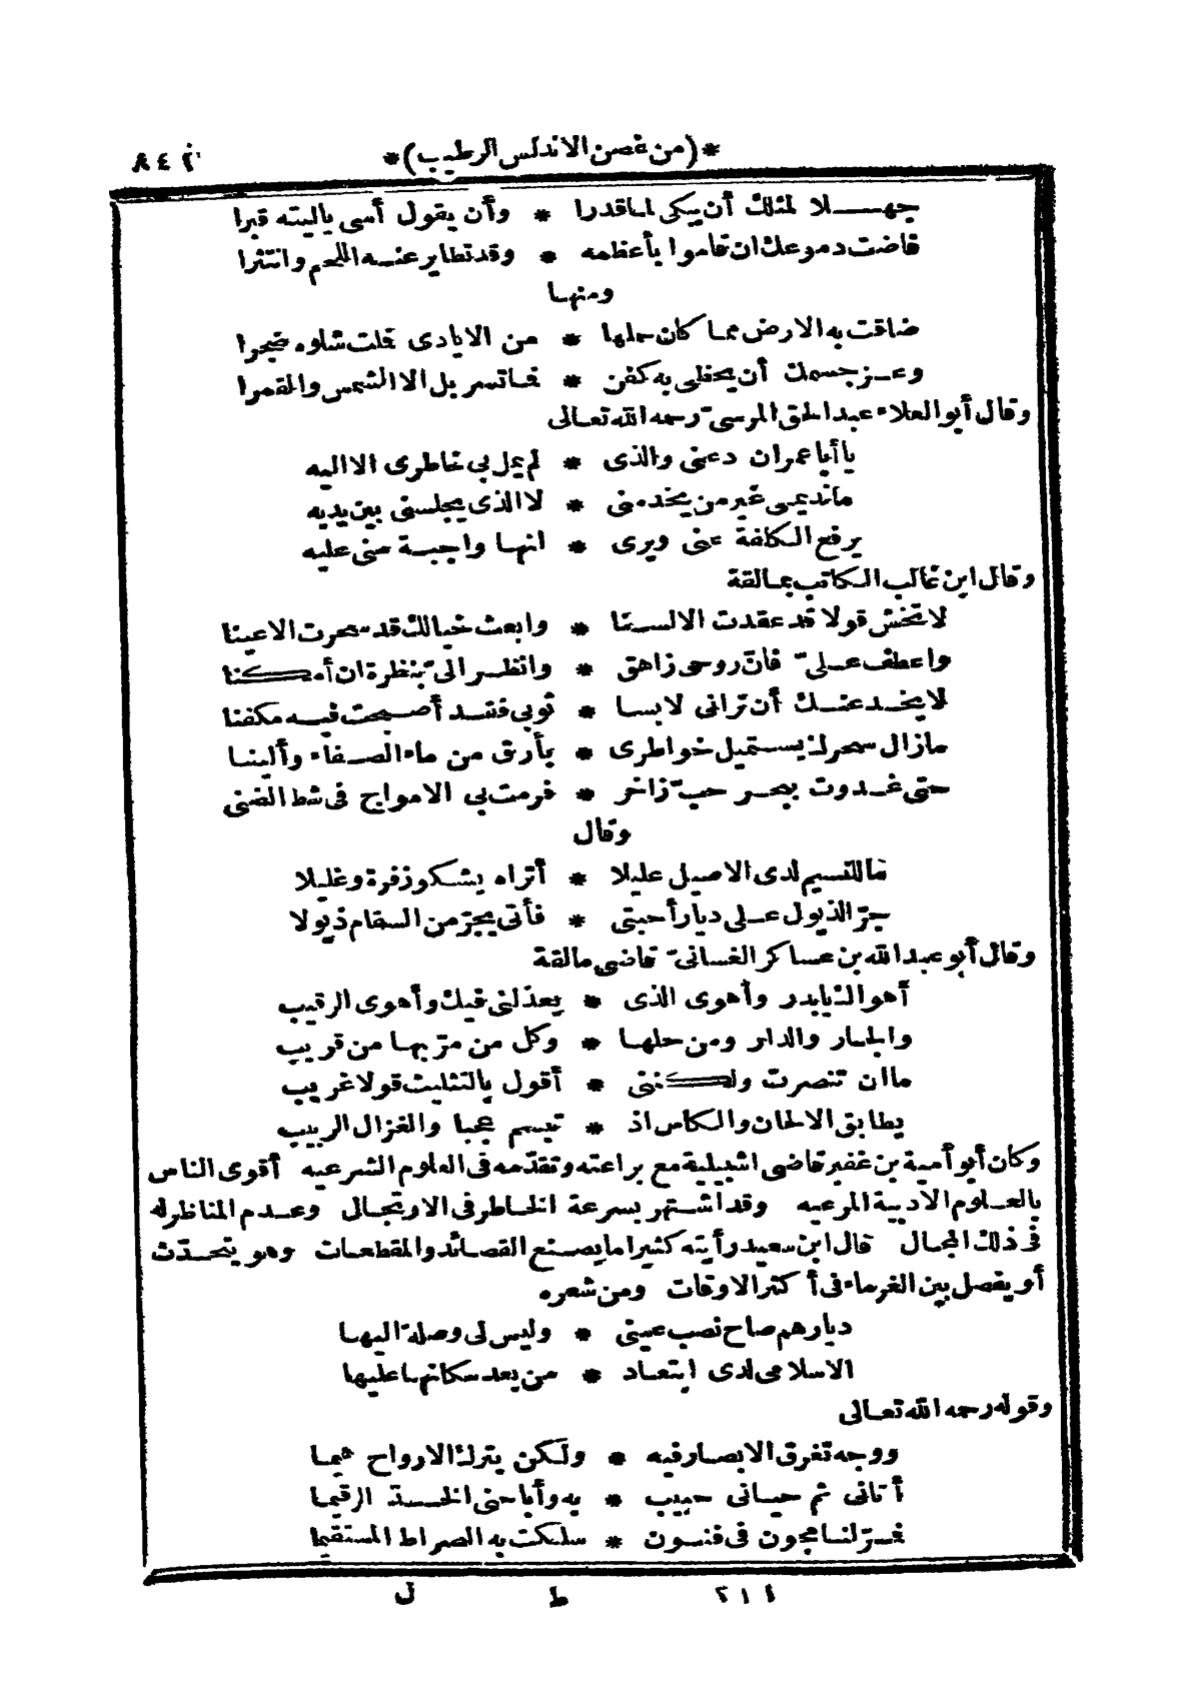 *(من غصن الاندلس الرطيب)* ٨٤٢
جهـــلا لمثلك أن يبكى لما قدرا * وأن يقول أسى ياليته قبرا
فاضت دموعك ان قاموا بأعظمه * وقد تطاير عنـه اللحم وانتثرا
ومنها
ضاقت به الارض مما كان حملها * من الايادى فلت شلوه ضجرا
وعـز جسمك أن يحظى به كفن * فما تسربل الا الشمس والقمرا
وقال أبو العلاء عبد الحق المرسىّ رحمه الله تعالى
يا أبا عمران دعنى والذى * لم يمل بى خاطرى الا اليه
ما نديمى غير من يخدمنى * لا الذى يجلسنى بين يديه
يرفع الكلفة عنى ويرى * انها واجبـة منى عليه
وقال ابن غالب الكاتب بمالقة
لا تخش قولا قد عقدت الالسنا * وابعث خيالك قد سحرت الاعينا
واعطف عـلىّ فانّ روحى زاهق * وانظـر الىّ بنظرة ان أمكنا
لا يخـدعنـك أن ترانى لابسا * ثوبى فقـد أصبحت فيـه مكفنا
مازال سحرك يستميل خواطرى * بأرق من ماء الصـفاء وألينـا
حتى غـدوت ببحـر حبّ زاخر * فرمت بى الامواج فى شط الضنى
وقال
ما للنسيم لدى الاصيل عليلا * أتراه يشكو زفرة وغليلا
جرّ الذيول عـلى ديار أحبتى * فأتى يجرّ من السقام ذيولا
وقال أبو عبد الله بن عساكر الغسانىّ قاضى مالقة
أهواك يا بدر وأهوى الذى * يعذلنى فيك وأهوى الرقيب
والجـار والدار ومن حلها * وكل من مرّ بهـا من قريب
ما ان تنصرت ولكننى * أقول بالتثليث قولا غريب
يطابق الالحان والكاس اذ * تبسم عجبا والغزال الربيب
وكان أبو أمية بن غفير قاضى اشبيلية مع براعته وتقدّمه فى العلوم الشرعيه أقوى الناس
بالعـلوم الادبية المرعيه وقد اشـتهر بسرعة الخـاطر فى الارتجـال وعـدم المناظر له
فى ذلك المجـال قال ابن سعيد ورأيته كثيرا ما يصـنع القصائد والمقطعـات وهو يتحـدّث
أو يفصل بين الغرماء فى أكثر الاوقات ومن شعره
ديارهم صاح نصب عينى * وليس لى وصلة اليها
الا سلامى لدى ابتعـاد * من بعد سكانها عليها
وقوله رحمه الله تعـالى
ووجه تغرق الابصار فيه * ولكن يترك الارواح هيما
أتانى ثم حيـانى حبيب * به وأباحنى الخـدّ الرقيما
فـرّ لنـا مجون فى فنـون * سلكت به الصراط المستقيما
٢١٤ ط ل